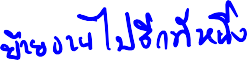 ย้ายงานไปอีกที่หนึ่ง